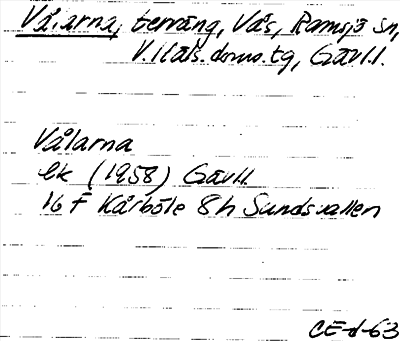 Vålarna, terräng, Vås, Ramsjö sn,
V. Häls. doms. tg, Gävl.l.
Vålarna
ek (1958) Gävl.l.
16 F Kårböle 8h Sundsvallen
CE-d-63